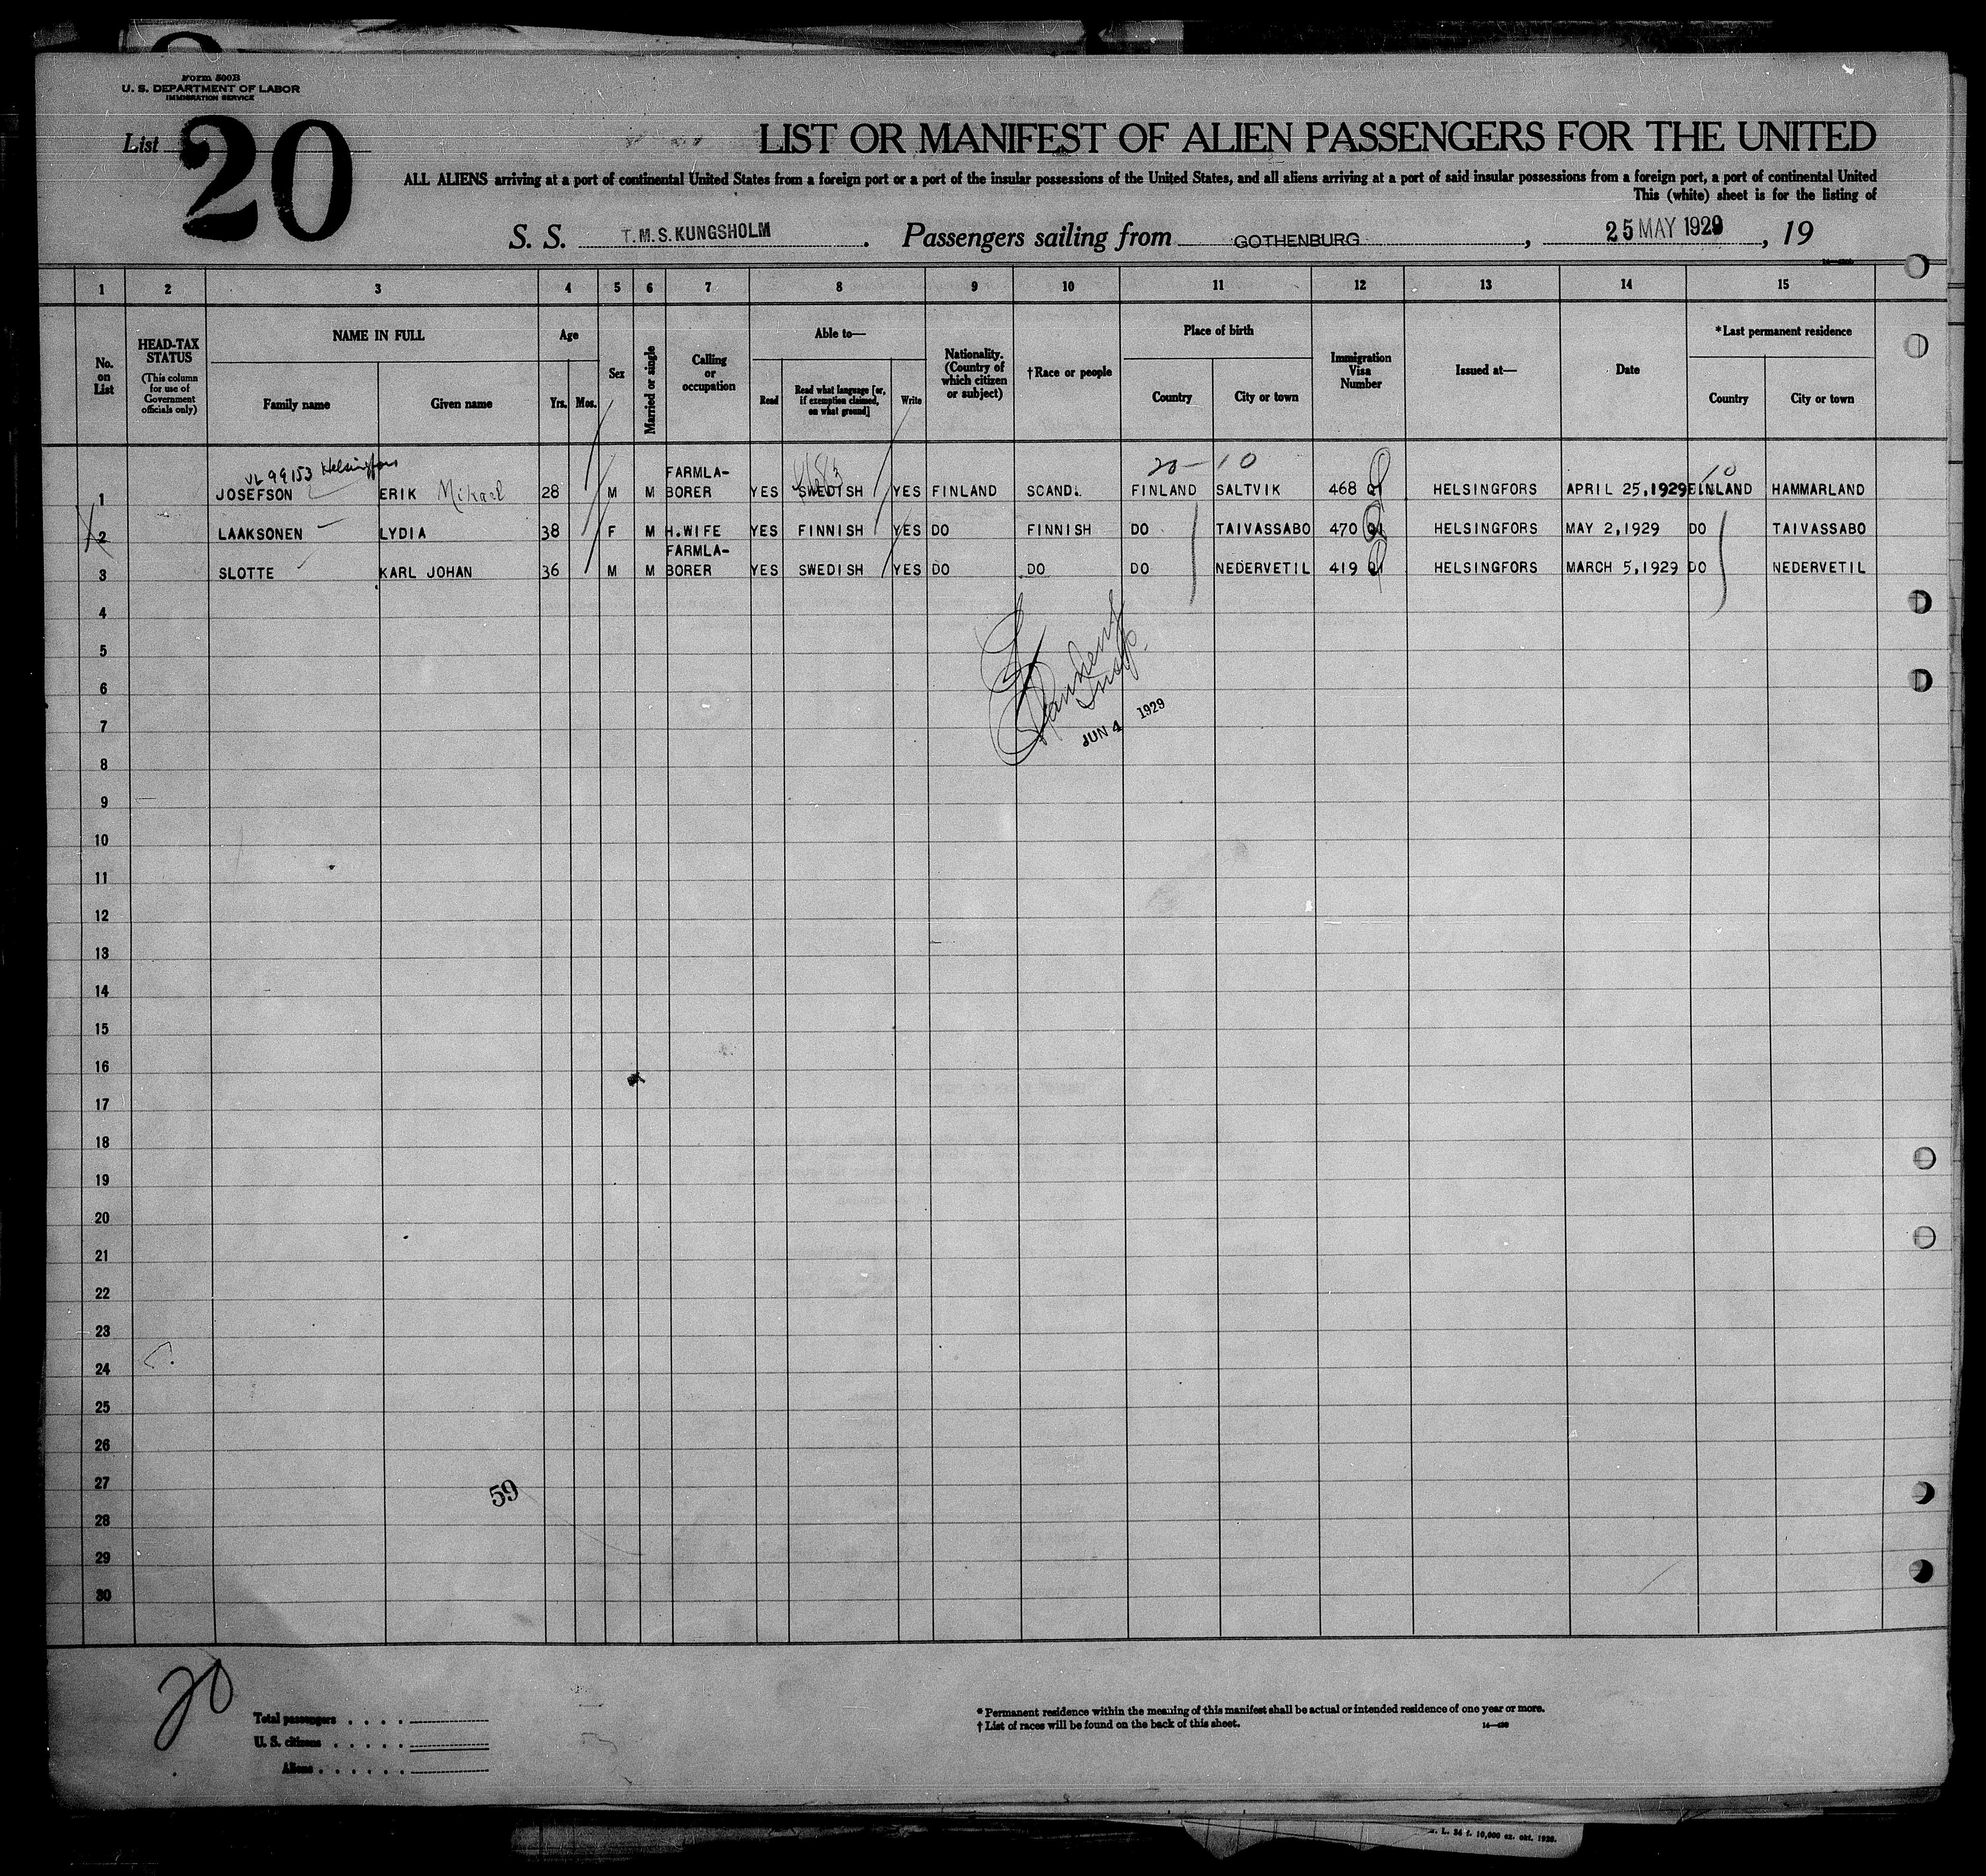 Form 500B
U. S. DEPARTMENT OF LABOR
IMMIGRATION SERVICE
List 20
LIST OR MANIFEST OF ALIEN PASSENGERS FOR THE UNITED
ALL ALIENS arriving at a port of continental United States from a foreign port or a port of the insular possessions of the United States, and all aliens arriving at a port of said insular possessions from a foreign port, a port of continental United
This (white) sheet is for the listing of
S. S. T.M.S. KUNGSHOLM. Passengers sailing from GOTHENBURG, 25 MAY 1929, 19
1 2 3 4 5 6 7 8 9 10 11 12 13 14 15
No. on List
HEAD-TAX STATUS
(This column for use of Government officials only)
NAME IN FULL
Family name
Given name
Age
Yrs. Mos.
Sex
Married or single
Calling or occupation
Able to—
Read
Read what language [or, if exemption claimed, on what ground]
Write
Nationality. (Country of which citizen or subject)
†Race or people
Place of birth
Country
City or town
Immigration Visa Number
Issued at—
Date
*Last permanent residence
Country
City or town
VL 99153 Helsingfors
20-10
10
1 JOSEFSON ERIK Mikael 28 M M FARMLA-BORER YES SWEDISH YES FINLAND SCAND. FINLAND SALTVIK 468 HELSINGFORS APRIL 25,1929 FINLAND HAMMARLAND
2 LAAKSONEN LYDIA 38 F M H.WIFE YES FINNISH YES DO FINNISH DO TAIVASSABO 470 HELSINGFORS MAY 2,1929 DO TAIVASSABO
3 SLOTTE KARL JOHAN 36 M M FARMLA-BORER YES SWEDISH YES DO DO DO NEDERVETIL 419 HELSINGFORS MARCH 5,1929 DO NEDERVETIL
4
5
6
Insp.
7
JUN 4 1929
8
9
10
11
12
13
14
15
16
17
18
19
20
21
22
23
24
25
26
27
59
28
29
30
20
Total passengers . . . .
U. S. citizens . . . . .
Aliens . . . . . .
* Permanent residence within the meaning of this manifest shall be actual or intended residence of one year or more.
† List of races will be found on the back of this sheet.